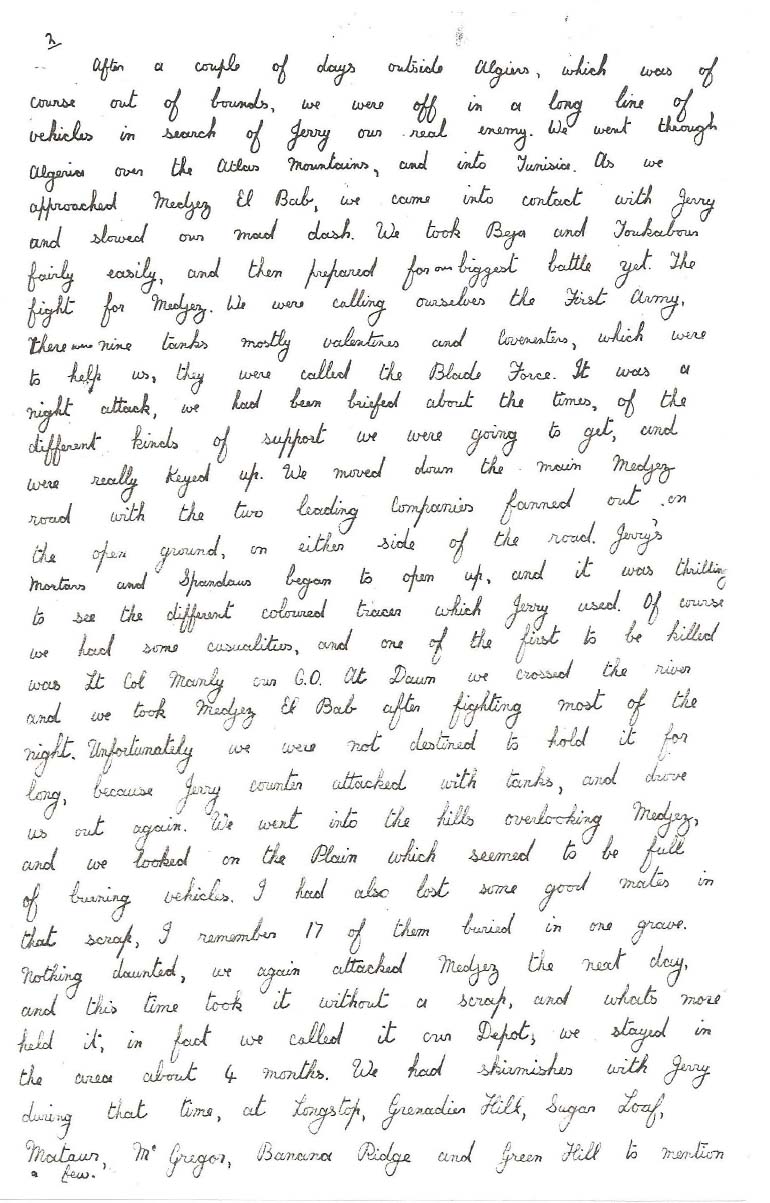 2
After a couple of days outside Algiers, which was of
course out of bounds, we were off in a long line of
vehicles in search of Jerry our real enemy. We went through
Algeria over the Atlas Mountains, and into Tunisia. As we
approached Medjez El Bab, we came into contact with Jerry
and slowed our mad dash. We took Beja and Toukabour
fairly easily, and then prepared for our biggest battle yet. The
fight for Medjez. We were calling ourselves the First Army,
There were nine tanks mostly valentines and Coventers, which were
to help us, they were called the Blade Force. It was a
night attack, we had been briefed about the times, of the
different kinds of support we were going to get, and
were really keyed up. We moved down the main Medjez
road with the two leading Companies fanned out on
the open ground, on either side of the road. Jerry's
Mortars and Spandaus began to open up, and it was thrilling
to see the different coloured tracer which Jerry used. Of course
we had some casualities, and one of the first to be killed
was Lt Col Manly our C.O. At Dawn we crossed the river
and we took Medjez El Bab after fighting most of the
night. Unfortunately we were not destined to hold it for
long, because Jerry counter attacked with tanks, and drove
us out again. We went into the hills overlooking Medjez,
and we looked on the Plain which seemed to be full
of burning vehicles. I had also lost some good mates in
that scrap, I remember 17 of them buried in one grave.
Nothing daunted, we again attacked Medjez the next day,
and this time took it without a scrap, and whats more
held it, in fact we called it our Depot, we stayed in
the area about 4 months. We had skirmishes with Jerry
during that time, at Longstop, Grenadier Hill, Sugar Loaf,
Mataur, Mc Gregor, Banana Ridge and Green Hill to mention
a few.